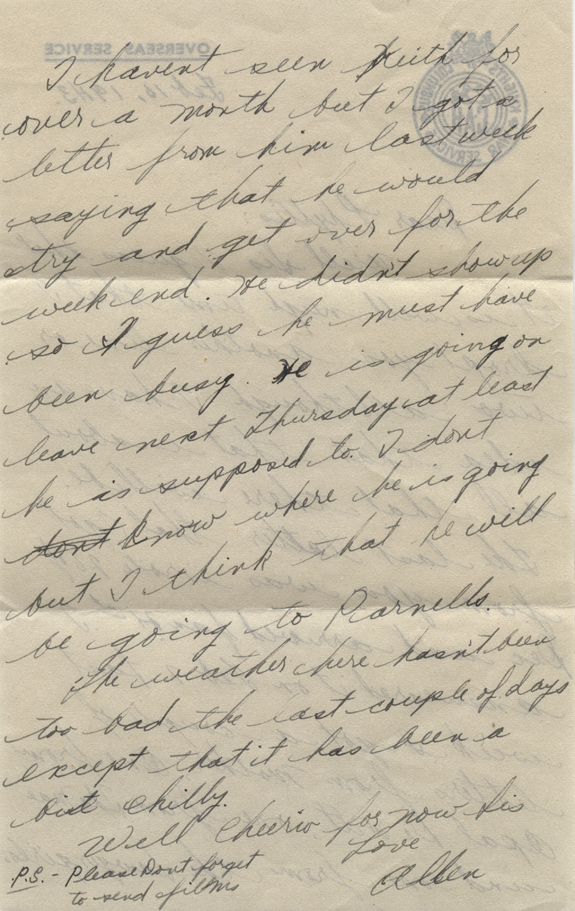 OVERSEAS SERVICE
I havent seen Keith for
over a month but I got a
letter from him last week
saying that he would
try and get over for the
week end. He didn't show up
so I guess he must have
been busy. He is going on
leave next Thursday at least
he is supposed to. I dont
dont know where he is going
but I think that he will
be going to Parnells.
The weather here hasn't been
too bad the last couple of days
except that it has been a
bit chilly.
Well Cheerio for now Sis
Love
Allen
P.S. - Please Dont forget
to send films